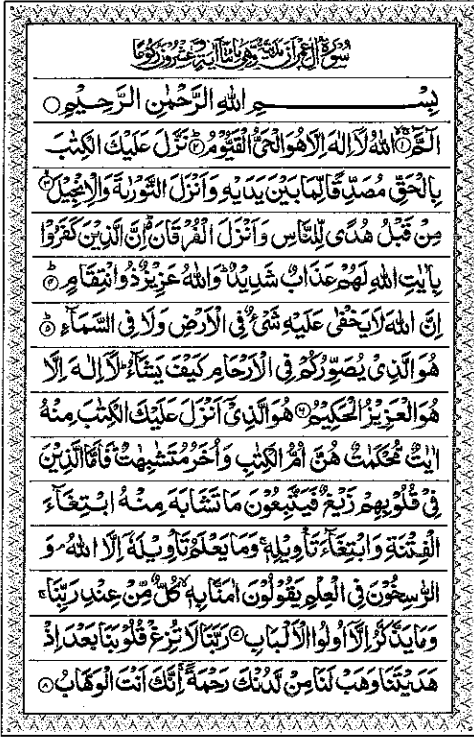 سُوْرَةُ اٰلِ عِمْرٰنَ مَدَنِيَّةٌ وَّهِيَ مِائَتَا اٰيَةٍ وَّعِشْرُوْنَ رُكُوْعًا
بِسْمِ اللهِ الرَّحْمٰنِ الرَّحِيْمِ ○
الٓمّٓ ۙ﴿۱﴾ اللهُ لَاۤ اِلٰهَ اِلَّا هُوَ الْحَيُّ الْقَيُّوْمُ ؕ﴿۲﴾ نَزَّلَ عَلَيْكَ الْكِتٰبَ
بِالْحَقِّ مُصَدِّقًا لِّمَا بَيْنَ يَدَيْهِ وَاَنْزَلَ التَّوْرٰىةَ وَالْاِنْجِيْلَ ۙ﴿۳﴾
مِنْ قَبْلُ هُدًى لِّلنَّاسِ وَاَنْزَلَ الْفُرْقَانَ ؕ اِنَّ الَّذِيْنَ كَفَرُوْا
بِاٰيٰتِ اللهِ لَهُمْ عَذَابٌ شَدِيْدٌ ؕ وَاللهُ عَزِيْزٌ ذُو انْتِقَامٍ ؕ﴿۴﴾
اِنَّ اللهَ لَا يَخْفٰى عَلَيْهِ شَيْءٌ فِي الْاَرْضِ وَلَا فِي السَّمَآءِ ؕ﴿۵﴾
هُوَ الَّذِيْ يُصَوِّرُكُمْ فِي الْاَرْحَامِ كَيْفَ يَشَآءُ ؕ لَاۤ اِلٰهَ اِلَّا
هُوَ الْعَزِيْزُ الْحَكِيْمُ ﴿۶﴾ هُوَ الَّذِيْۤ اَنْزَلَ عَلَيْكَ الْكِتٰبَ مِنْهُ
اٰيٰتٌ مُّحْكَمٰتٌ هُنَّ اُمُّ الْكِتٰبِ وَاُخَرُ مُتَشٰبِهٰتٌ ؕ فَاَمَّا الَّذِيْنَ
فِيْ قُلُوْبِهِمْ زَيْغٌ فَيَتَّبِعُوْنَ مَا تَشَابَهَ مِنْهُ ابْتِغَآءَ
الْفِتْنَةِ وَابْتِغَآءَ تَاْوِيْلِهٖ ۚ وَمَا يَعْلَمُ تَاْوِيْلَهٗۤ اِلَّا اللهُ ۘ وَ
الرّٰسِخُوْنَ فِي الْعِلْمِ يَقُوْلُوْنَ اٰمَنَّا بِهٖ ۙ كُلٌّ مِّنْ عِنْدِ رَبِّنَا ۚ
وَمَا يَذَّكَّرُ اِلَّاۤ اُولُوا الْاَلْبَابِ ﴿۷﴾ رَبَّنَا لَا تُزِغْ قُلُوْبَنَا بَعْدَ اِذْ
هَدَيْتَنَا وَهَبْ لَنَا مِنْ لَّدُنْكَ رَحْمَةً ۚ اِنَّكَ اَنْتَ الْوَهَّابُ ﴿۸﴾